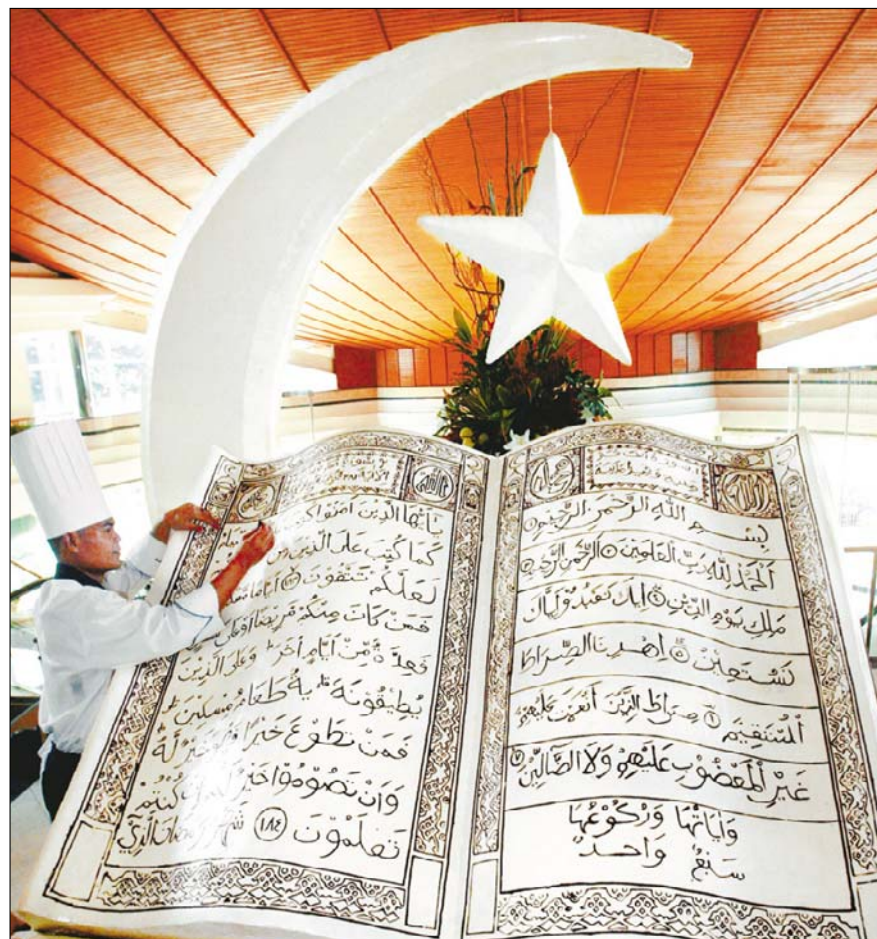 الله
محمد
بِسْمِ اللهِ الرَّحْمٰنِ الرَّحِيْمِ
اَلْحَمْدُ لِلّٰهِ رَبِّ الْعٰلَمِيْنَ الرَّحْمٰنِ الرَّحِيْمِ
مٰلِكِ يَوْمِ الدِّيْنِ اِيَّاكَ نَعْبُدُ وَاِيَّاكَ
نَسْتَعِيْنُ اِهْدِنَا الصِّرَاطَ
الْمُسْتَقِيْمَ ٦ صِرَاطَ الَّذِيْنَ اَنْعَمْتَ عَلَيْهِمْ
غَيْرِ الْمَغْضُوْبِ عَلَيْهِمْ وَلَا الضَّالِّيْنَ ٧
وَاٰيَاتُهَا وَرُكُوْعُهَا
سَبْعٌ وَاحِدٌ
الله
يٰاَيُّهَا الَّذِيْنَ اٰمَنُوْا
كَمَا كُتِبَ عَلَى الَّذِيْنَ مِنْ
لَعَلَّكُمْ تَتَّقُوْنَ اَيَّامًا
فَمَنْ كَانَ مِنْكُمْ مَّرِيْضًا اَوْ عَلٰى
فَعِدَّةٌ مِّنْ اَيَّامٍ اُخَرَ وَعَلَى الَّذِيْنَ
يُطِيْقُوْنَهٗ طَعَامُ مِسْكِيْنٍ
فَمَنْ تَطَوَّعَ خَيْرًا فَهُوَ خَيْرٌ لَّهٗ
وَاَنْ تَصُوْمُوْا خَيْرٌ لَّكُمْ اِنْ كُنْتُمْ
تَعْلَمُوْنَ ١٨٤ شَهْرُ رَمَضَانَ الَّذِيْ